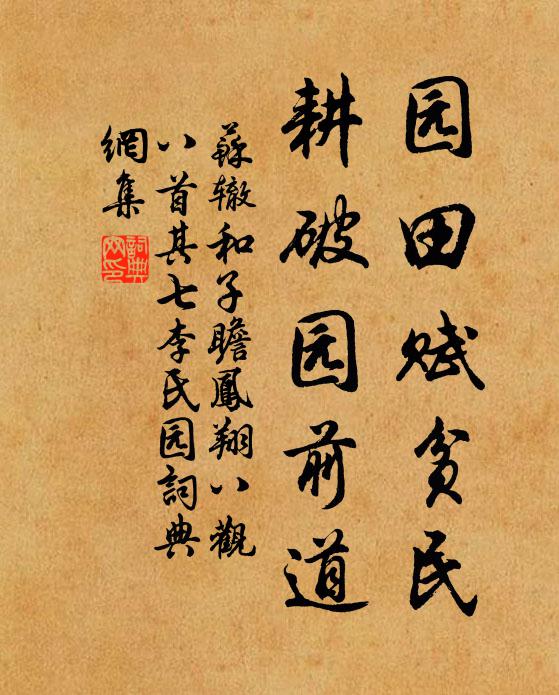 园田赋贫民
耕破园前道
蘇辙和子瞻鳳翔八觀
八首其七李民园詞典
網集
詞典網印